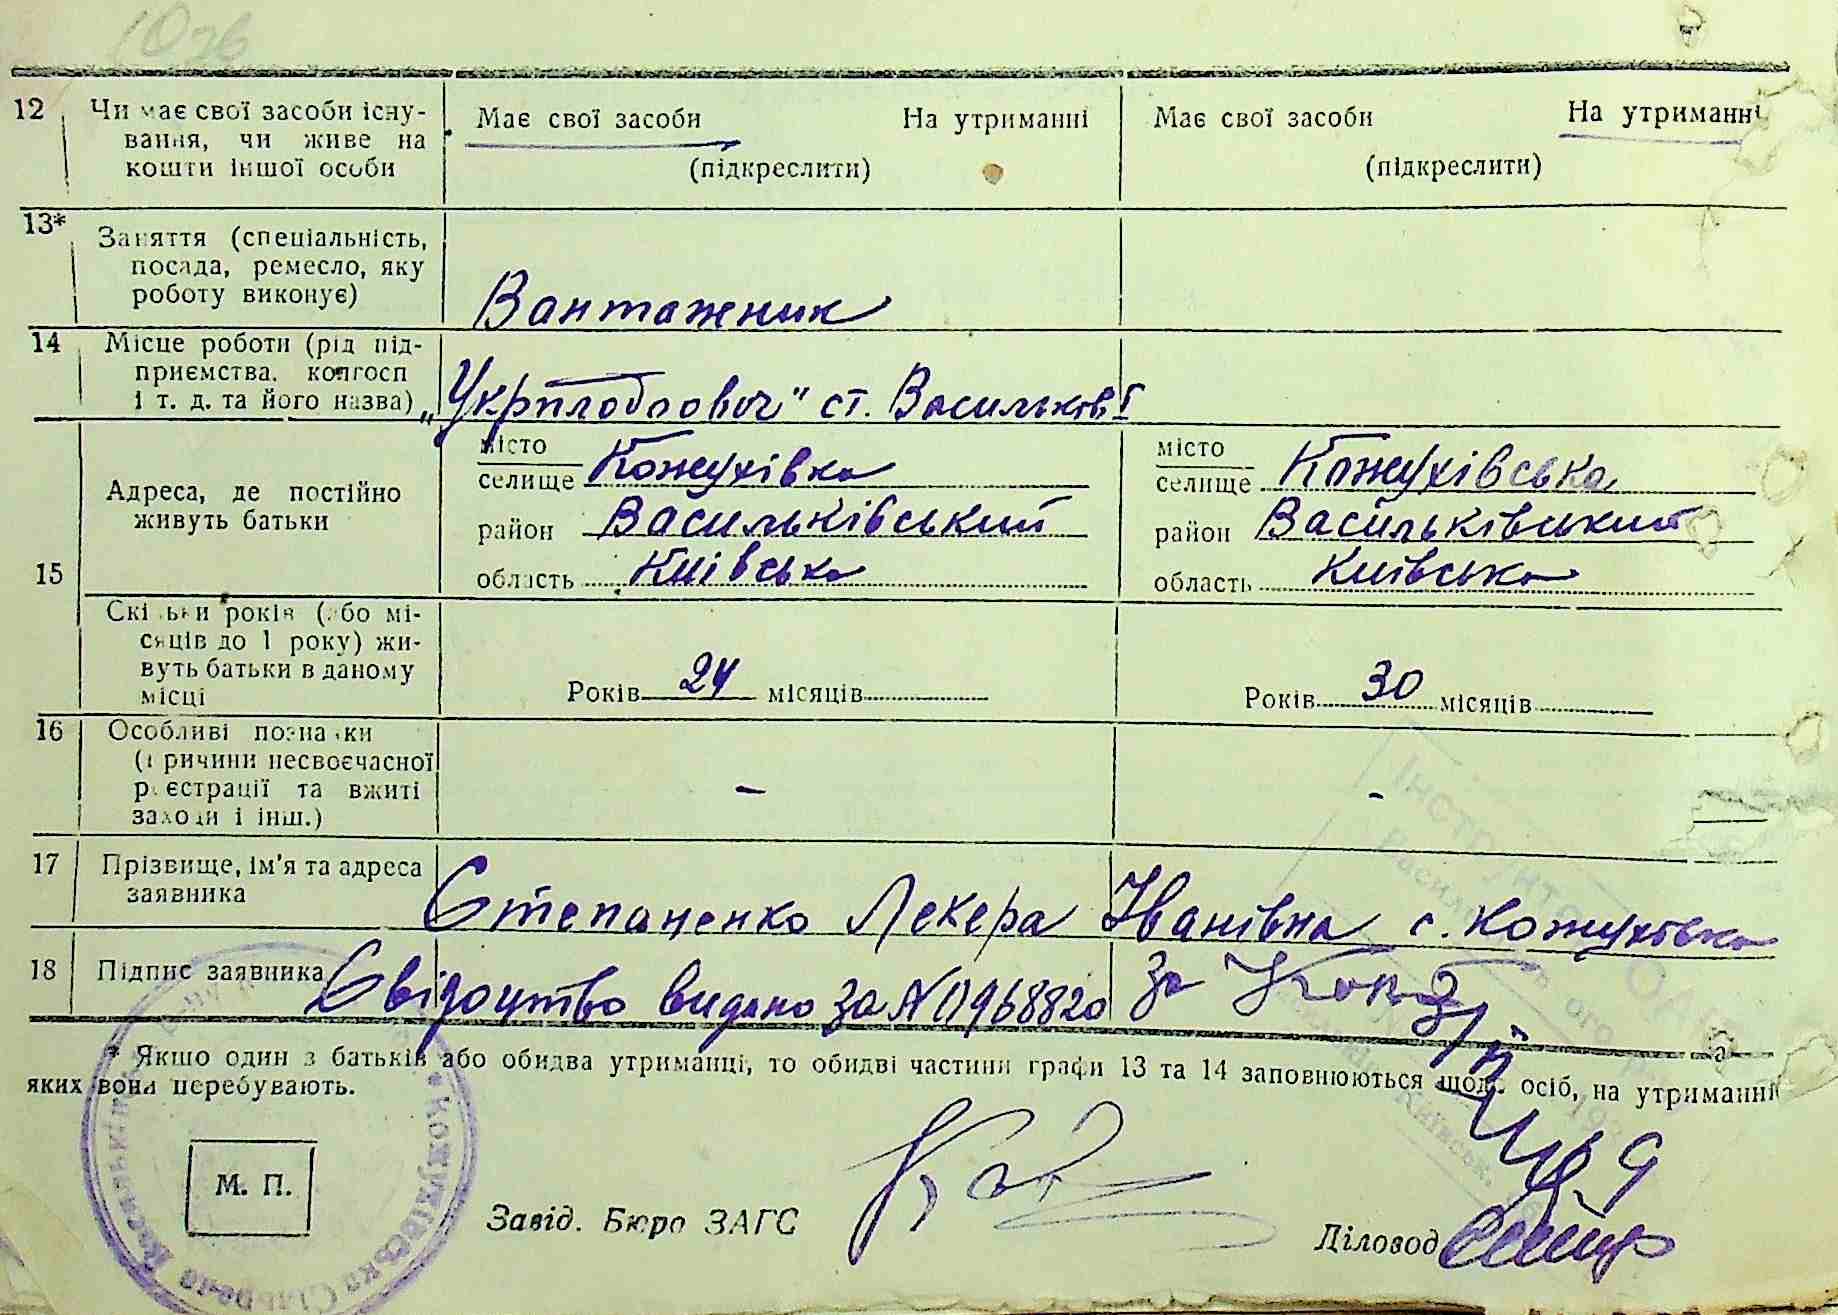 12 Чи має свої засоби існу-
вання, чи живе на
кошти іншої особи
Має свої засоби На утриманні
(підкреслити)
Має свої засоби На утриманні
(підкреслити)
13* Заняття (спеціальність,
посада, ремесло, яку
роботу виконує)
Вантажник
14 Місце роботи (рід під-
приємства, колгосп
і т. д. та його назва)
"Укрплодоовоч" ст. Васильків I
15 Адреса, де постійно
живуть батьки
місто
селище Кожухівка
район Васильківський
область Київська
місто
селище Кожухівська
район Васильківський
область Київська
Скільки років (або мі-
сяців до 1 року) жи-
вуть батьки в даному
місці
Років 24 місяців
Років 30 місяців
16 Особливі познаки
(причини несвоєчасної
реєстрації та вжиті
заходи і інш.)
–
-
17 Прізвище, ім'я та адреса
заявника
Степаненко Лекера Іванівна с. Кожухівка
18 Підпис заявника
Свідоцтво видано за № 968820 за
* Якщо один з батьків або обидва утриманці, то обидві частини графи 13 та 14 заповнюються щодо осіб, на утриманні
яких вони перебувають.
М. П.
Завід. Бюро ЗАГС
Діловод
Кожухівська Сільрада